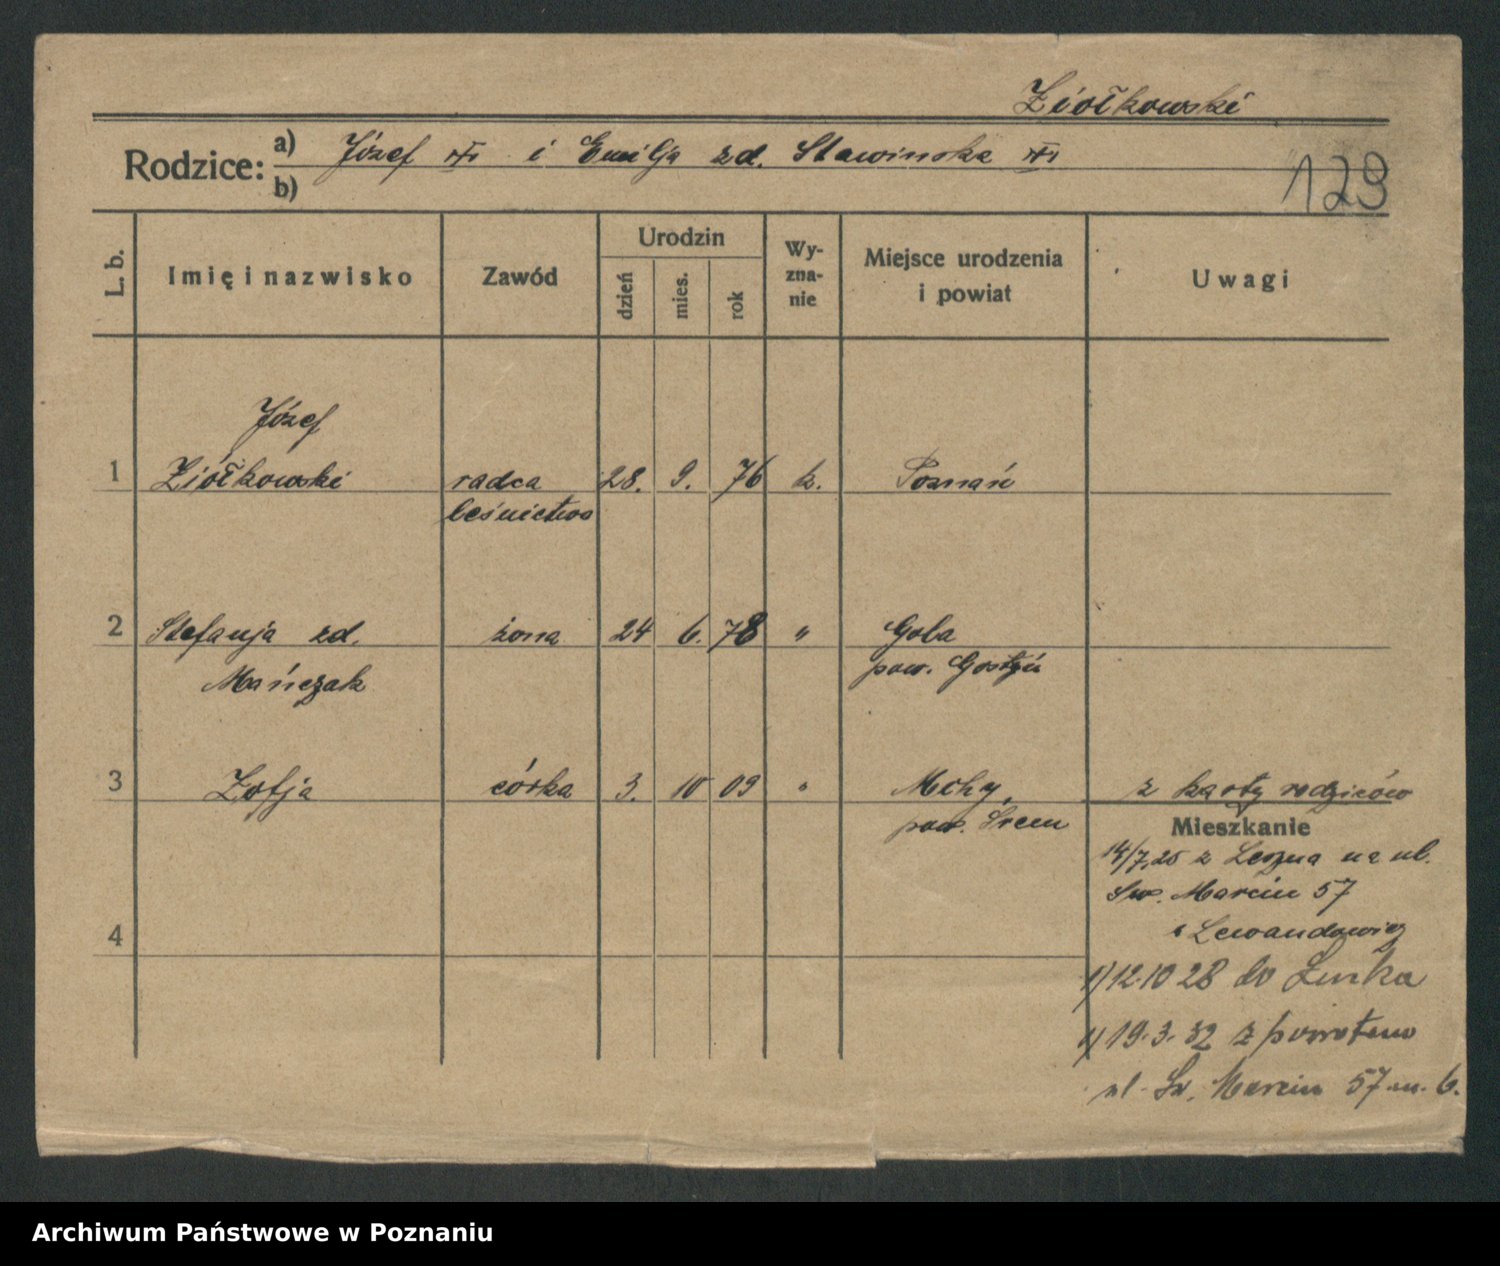 Ziołkowski
Rodzice: a) Józef i Emilja zd. Stawinska
b)
129
L. b. Imię i nazwisko Zawód Urodzin dzień mies. rok Wy-zna-nie Miejsce urodzenia i powiat Uwagi
Józef
1 Ziółkowski radca 28. 9. 76 k. Poznań
leśnictwa
2 Stefanja zd. żona 24 6. 78 " Gola
Mańczak pow. Gostyń
3 Zofja córka 3. 10 09 " Mchy,
pow. Śrem
z karty rodziców
Mieszkanie
14/7.25 z Leszna na ul.
Sw. Marcin 57
Lewandowicz
4
1) 12.10 28 do
1) 19.3.32 z powrotem
ul. Św. Marcin 57 m. 6.
Archiwum Państwowe w Poznaniu